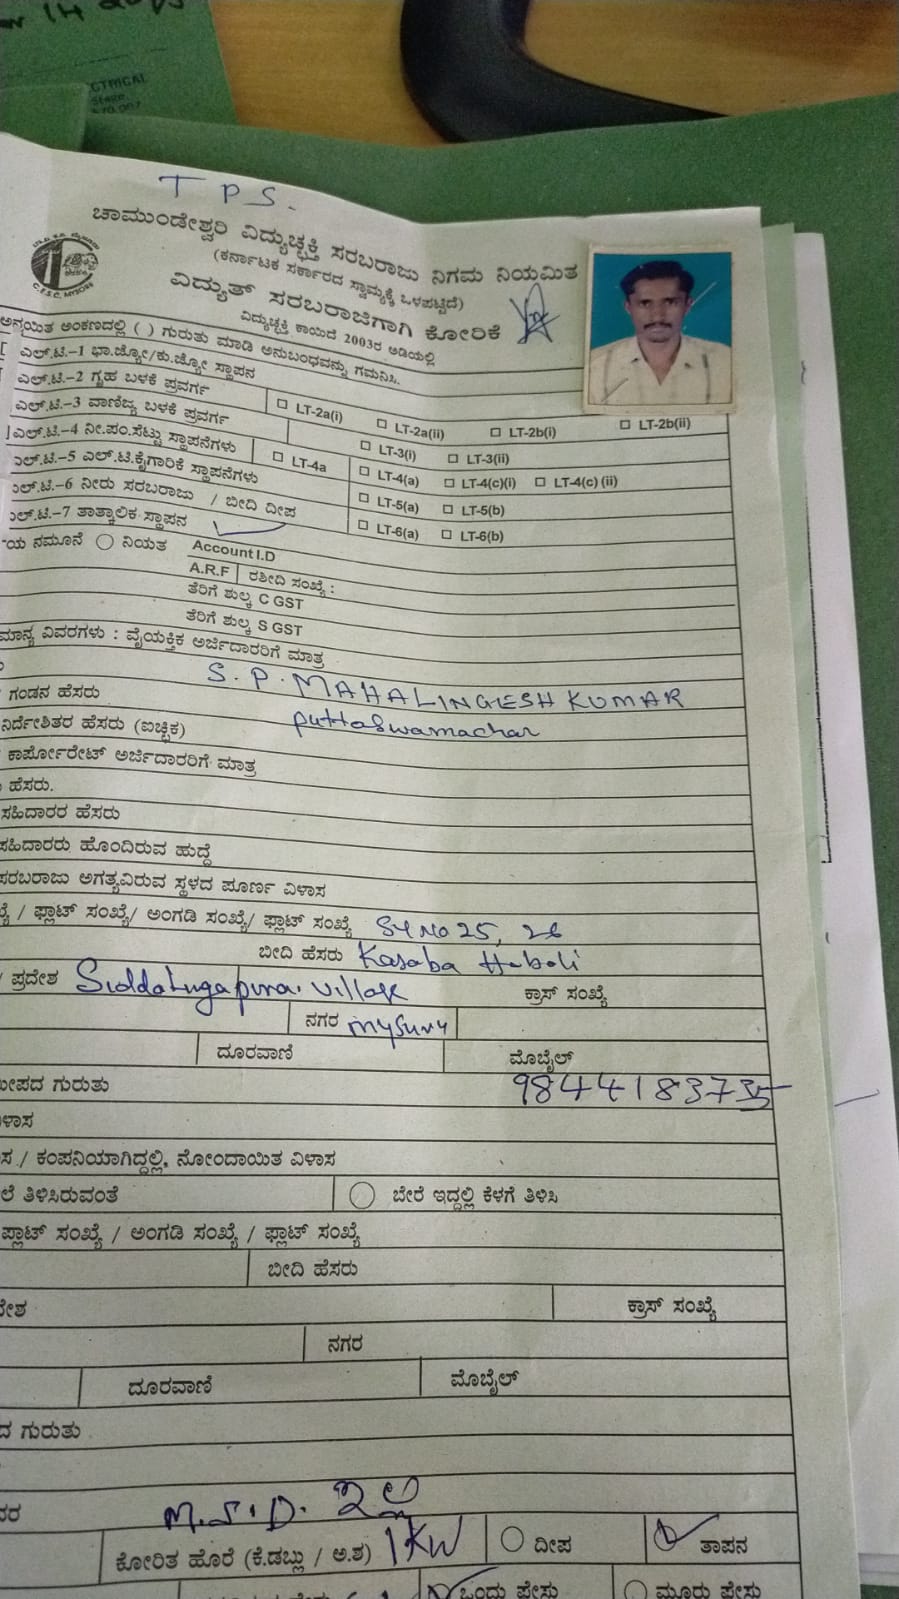 or 14 days
CTRICAL
Stage,
T P S.
ಚಾಮುಂಡೇಶ್ವರಿ ವಿದ್ಯುಚ್ಛಕ್ತಿ ಸರಬರಾಜು ನಿಗಮ ನಿಯಮಿತ
(ಕರ್ನಾಟಕ ಸರ್ಕಾರದ ಸ್ವಾಮ್ಯಕ್ಕೆ ಒಳಪಟ್ಟಿದೆ)
C.E.S.C. MYSORE
ವಿದ್ಯುತ್ ಸರಬರಾಜಿಗಾಗಿ ಕೋರಿಕೆ
ವಿದ್ಯುಚ್ಛಕ್ತಿ ಕಾಯಿದೆ 2003ರ ಅಡಿಯಲ್ಲಿ
ಅನ್ವಯಿತ ಅಂಕಣದಲ್ಲಿ ( ) ಗುರುತು ಮಾಡಿ ಅನುಬಂಧವನ್ನು ಗಮನಿಸಿ.
ಎಲ್.ಟಿ.-1 ಭಾ.ಜ್ಯೋ/ಕು.ಜ್ಯೋ ಸ್ಥಾಪನ
ಎಲ್.ಟಿ.-2 ಗೃಹ ಬಳಕೆ ಪ್ರವರ್ಗ LT-2a(i) LT-2a(ii) LT-2b(i) LT-2b(ii)
ಎಲ್.ಟಿ.-3 ವಾಣಿಜ್ಯ ಬಳಕೆ ಪ್ರವರ್ಗ LT-3(i) LT-3(ii)
ಎಲ್.ಟಿ.-4 ನೀ.ಪಂ.ಸೆಟ್ಟು ಸ್ಥಾಪನೆಗಳು LT-4a LT-4(a) LT-4(c)(i) LT-4(c) (ii)
ಎಲ್.ಟಿ.-5 ಎಲ್.ಟಿ.ಕೈಗಾರಿಕೆ ಸ್ಥಾಪನೆಗಳು LT-5(a) LT-5(b)
ಎಲ್.ಟಿ.-6 ನೀರು ಸರಬರಾಜು / ಬೀದಿ ದೀಪ LT-6(a) LT-6(b)
ಎಲ್.ಟಿ.-7 ತಾತ್ಕಾಲಿಕ ಸ್ಥಾಪನ
ಯ ನಮೂನೆ ನಿಯತ Account I.D
A.R.F ರಶೀದಿ ಸಂಖ್ಯೆ :
ತೆರಿಗೆ ಶುಲ್ಕ C GST
ತೆರಿಗೆ ಶುಲ್ಕ S GST
ಮಾನ್ಯ ವಿವರಗಳು : ವೈಯಕ್ತಿಕ ಅರ್ಜಿದಾರರಿಗೆ ಮಾತ್ರ
S. P. MAHALINGESH KUMAR
ಗಂಡನ ಹೆಸರು puttaswamachar
ನಿರ್ದೇಶಿತರ ಹೆಸರು (ಐಚ್ಛಿಕ)
ಕಾರ್ಪೋರೇಟ್ ಅರ್ಜಿದಾರರಿಗೆ ಮಾತ್ರ
ಹೆಸರು.
ಸಹಿದಾರರ ಹೆಸರು
ಸಹಿದಾರರು ಹೊಂದಿರುವ ಹುದ್ದೆ
ಸರಬರಾಜು ಅಗತ್ಯವಿರುವ ಸ್ಥಳದ ಪೂರ್ಣ ವಿಳಾಸ
ಖ್ಯೆ / ಫ್ಲಾಟ್ ಸಂಖ್ಯೆ/ ಅಂಗಡಿ ಸಂಖ್ಯೆ/ ಫ್ಲಾಟ್ ಸಂಖ್ಯೆ SY No 25, 26
ಬೀದಿ ಹೆಸರು Kasaba Hoboli
/ ಪ್ರದೇಶ Siddalingapura. village ಕ್ರಾಸ್ ಸಂಖ್ಯೆ
ನಗರ mysuru
ದೂರವಾಣಿ ಮೊಬೈಲ್
ಮೀಪದ ಗುರುತು 9844183735
ಳಾಸ
ಸ / ಕಂಪನಿಯಾಗಿದ್ದಲ್ಲಿ, ನೋಂದಾಯಿತ ವಿಳಾಸ
ಲೆ ತಿಳಿಸಿರುವಂತೆ ಬೇರೆ ಇದ್ದಲ್ಲಿ ಕೆಳಗೆ ತಿಳಿಸಿ
ಪ್ಲಾಟ್ ಸಂಖ್ಯೆ / ಅಂಗಡಿ ಸಂಖ್ಯೆ / ಫ್ಲಾಟ್ ಸಂಖ್ಯೆ
ಬೀದಿ ಹೆಸರು
ದೇಶ ಕ್ರಾಸ್ ಸಂಖ್ಯೆ
ನಗರ
ದೂರವಾಣಿ ಮೊಬೈಲ್
ದ ಗುರುತು
ವರ M.S.D. ಇಲ್ಲ
ಕೋರಿತ ಹೊರೆ (ಕೆ.ಡಬ್ಲು / ಅ.ಶ) 1KW ದೀಪ ತಾಪನ
ಒಂದು ಫೇಸು ಮೂರು ಫೇಸು